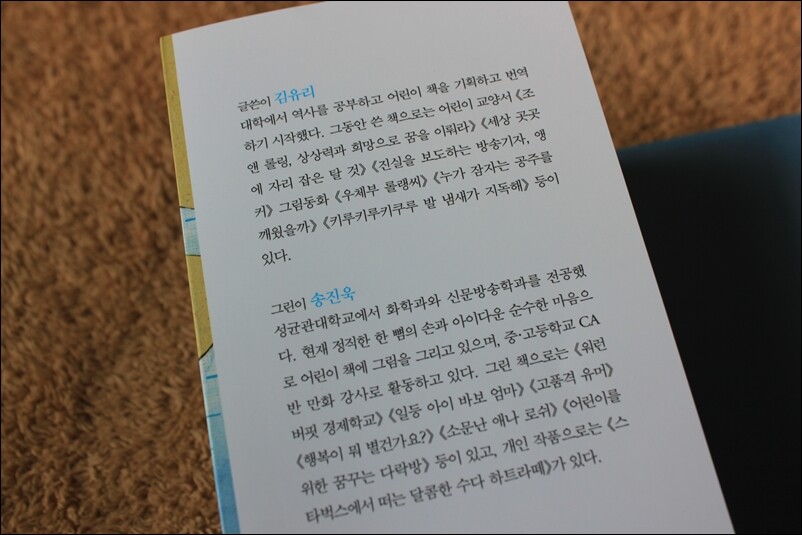 글쓴이 김유리
대학에서 역사를 공부하고 어린이 책을 기획하고 번역
하기 시작했다. 그동안 쓴 책으로는 어린이 교양서 《조
앤 롤링, 상상력과 희망으로 꿈을 이뤄라》 《세상 곳곳
에 자리 잡은 탈 것》 《진실을 보도하는 방송기자, 앵
커》 그림동화 《우체부 롤랭씨》 《누가 잠자는 공주를
깨웠을까》 《키루키루키쿠루 발 냄새가 지독해》 등이
있다.
그린이 송진욱
성균관대학교에서 화학과와 신문방송학과를 전공했
다. 현재 정직한 한 뼘의 손과 아이다운 순수한 마음으
로 어린이 책에 그림을 그리고 있으며, 중·고등학교 CA
반 만화 강사로 활동하고 있다. 그린 책으로는 《워런
버핏 경제학교》 《일등 아이 바보 엄마》 《고품격 유머》
《행복이 뭐 별건가요?》 《소문난 애나 로쉬》 《어린이를
위한 꿈꾸는 다락방》 등이 있고, 개인 작품으로는 《스
타벅스에서 떠는 달콤한 수다 하트라떼》가 있다.